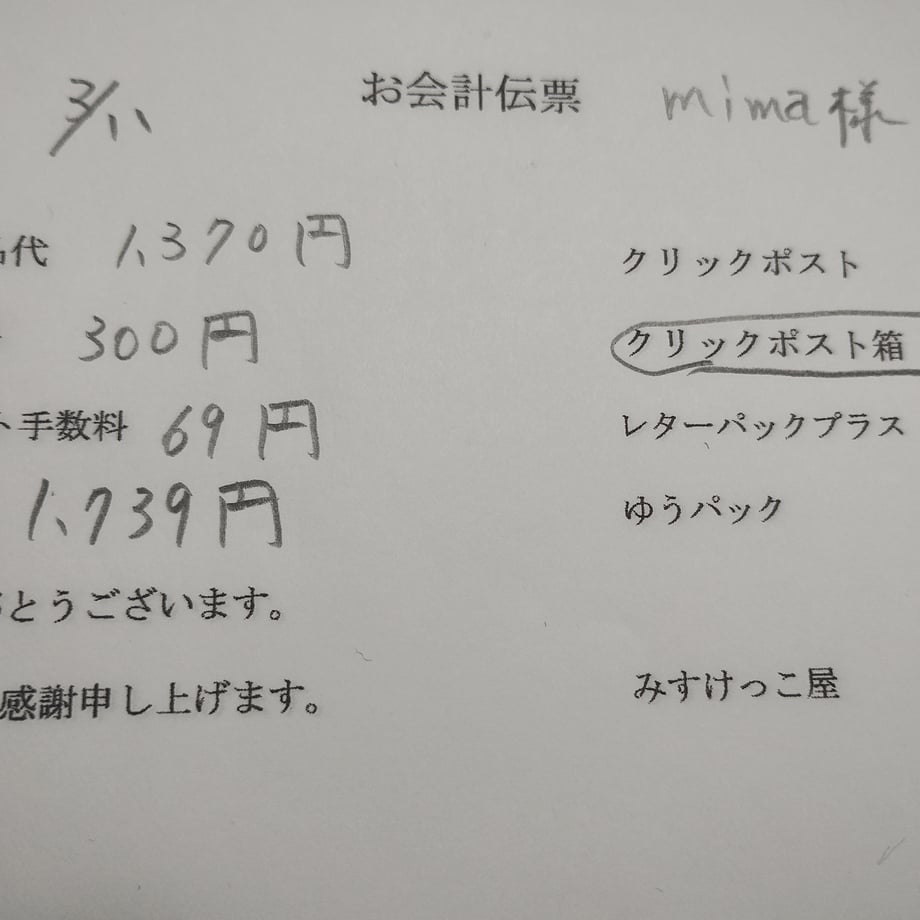 3/11 お会計伝票 mima様
品代 1,370円 クリックポスト
300円 クリックポスト箱
ト手数料 69円 レターパックプラス
1,739円 ゆうパック
とうございます。
感謝申し上げます。 みすけっこ屋